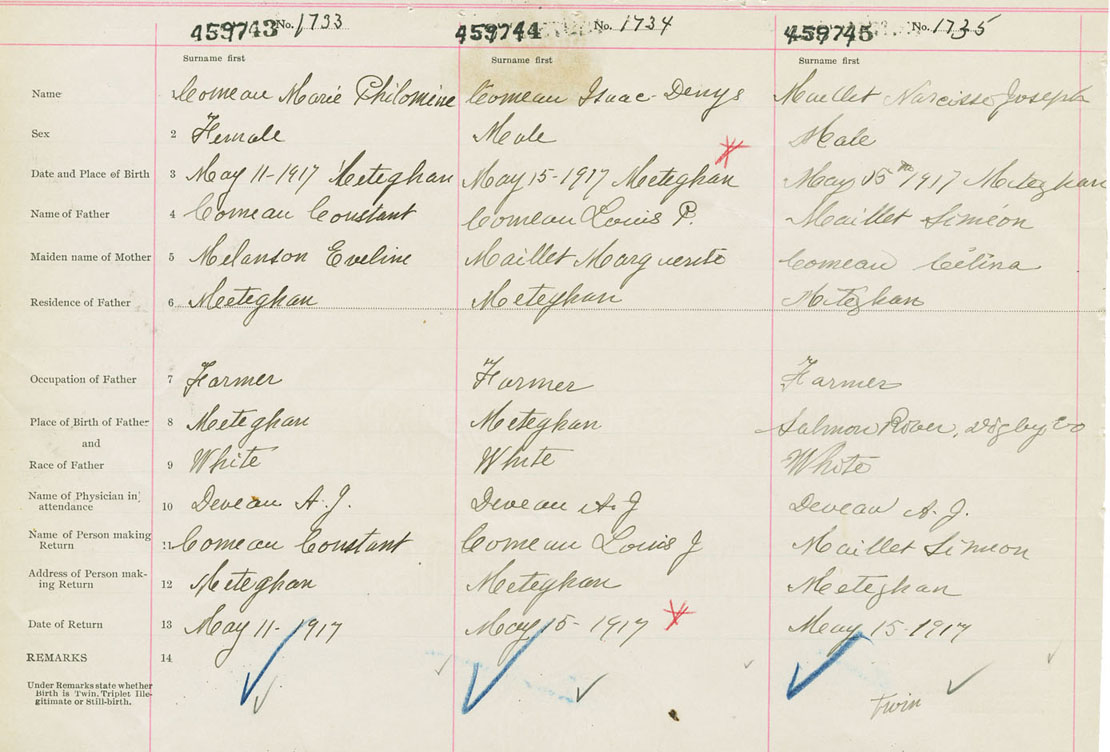 459743 No. 1733 459744 No. 1734 459745 No. 1735
Surname first Surname first Surname first
Name Comeau Marie Philomène Comeau Isaac-Denys Maillet Narcisse Joseph
Sex 2 Female Male Male
Date and Place of Birth 3 May 11-1917 Meteghan May 15-1917 Meteghan May 15th 1917 Meteghan
Name of Father 4 Comeau Constant Comeau Louis P. Maillet Siméon
Maiden name of Mother 5 Melanson Eveline Maillet Marguerite Comeau Célina
Residence of Father 6 Meteghan Meteghan Meteghan
Occupation of Father 7 Farmer Farmer Farmer
Place of Birth of Father 8 Meteghan Meteghan Salmon River, Digby Co
and
Race of Father 9 White White White
Name of Physician in
attendance 10 Deveau A. J. Deveau A. J Deveau A. J.
Name of Person making
Return 11 Comeau Constant Comeau Louis J Maillet Simeon
Address of Person mak-
ing Return 12 Meteghan Meteghan Meteghan
Date of Return 13 May 11-1917 May 15-1917 May 15-1917
REMARKS 14
Under Remarks state whether
Birth is Twin, Triplet Ille-
gitimate or Still-birth.
Twin